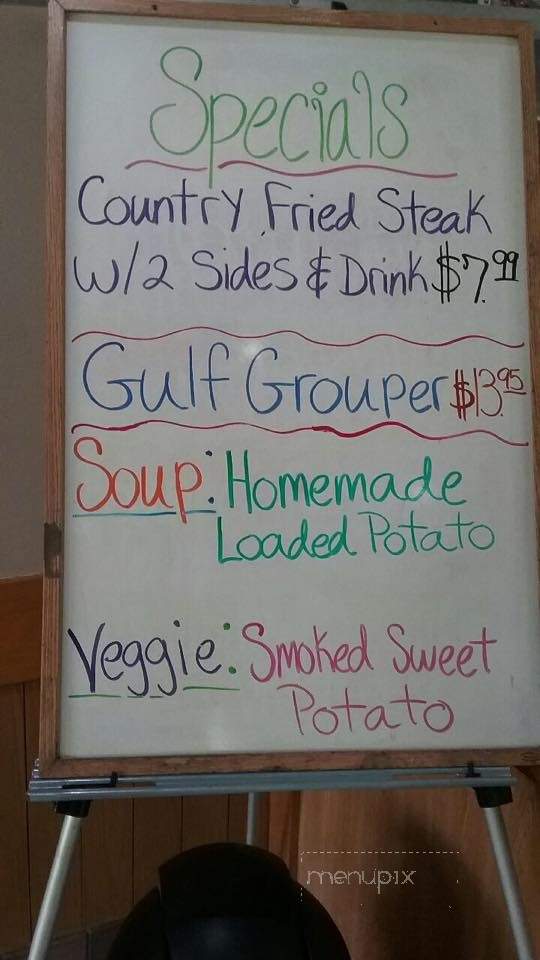 Specials
Country Fried Steak
W/2 Sides & Drink $7.99
Gulf Grouper $13.95
Soup: Homemade
Loaded Potato
Veggie: Smoked Sweet
Potato
menupix